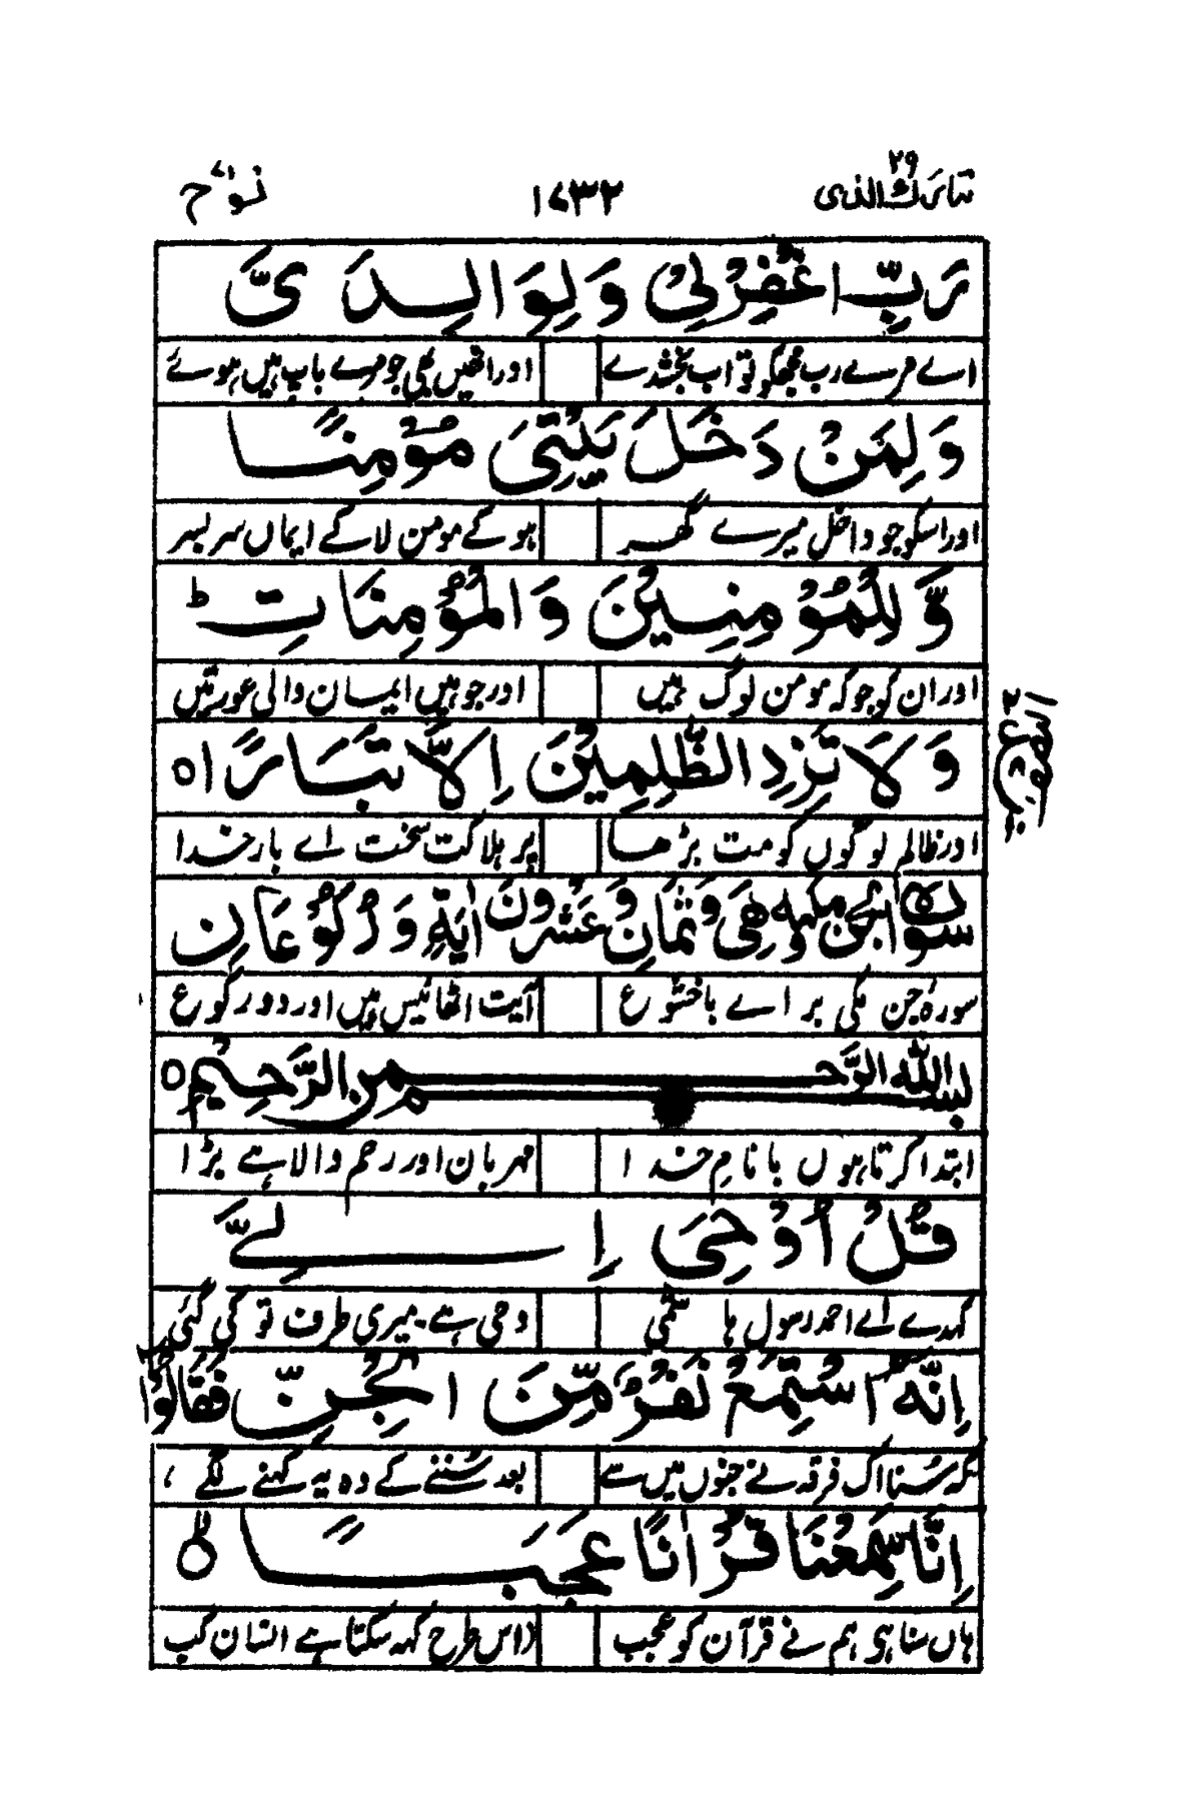 تبارك الذی ۲۹
۱۷۳۲
نوح ۷۱
رَبِّ اغْفِرْلِیْ وَلِوَالِدَیَّ
اے مرے رب مجھکو تو اب بخشدے اور انھیں بھی جو مرے باپ ہیں ہوئے
وَلِمَنْ دَخَلَ بَيْتِیَ مُؤْمِنًا
اور اسکو جو داخل میرے گھر ہو کے مومن لا کے ایماں سر بسر
وَّ لِلْمُؤْمِنِيْنَ وَالْمُؤْمِنَاتِ ط
اور ان کو جو کہ مومن لوگ ہیں اور جو ہیں ایمان والی عورتیں
وَلَا تَزِدِ الظّٰلِمِيْنَ اِلَّا تَبَارًا ○
اور ظالم لوگوں کو مت بڑھا پر ہلاکت سخت اے بار خدا
سورة الجن مکیه وهی ثمان وعشرون اٰیة ورکوعان
سورۂ جن مکی بر اے باخشوع آیت اٹھائیس ہیں اور دو رکوع
بسم الله الرَّحمٰن الرَّحِیم ○
ابتدا کرتا ہوں با نامِ خدا مہربان اور رحم والا ہے بڑا
قُلْ اُوْحِیَ اِلَیَّ
کہدے اے احمد رسول ہاشمی وحی ہے میری طرف تو کی گئی
اِنَّهُ اسْتَمَعَ نَفَرٌ مِّنَ الْجِنِّ فَقَالُوْا
کہ سُنا اک فرقہ نے جنوں میں سے بعد سُننے کے وہ یہ کہنے لگے ،
اِنَّا سَمِعْنَا قُرْاٰنًا عَجَبًا ○ ط
ہاں سنا ہی ہم نے قرآن کو عجب (اس طرح کہہ سکتا ہے انسان کب